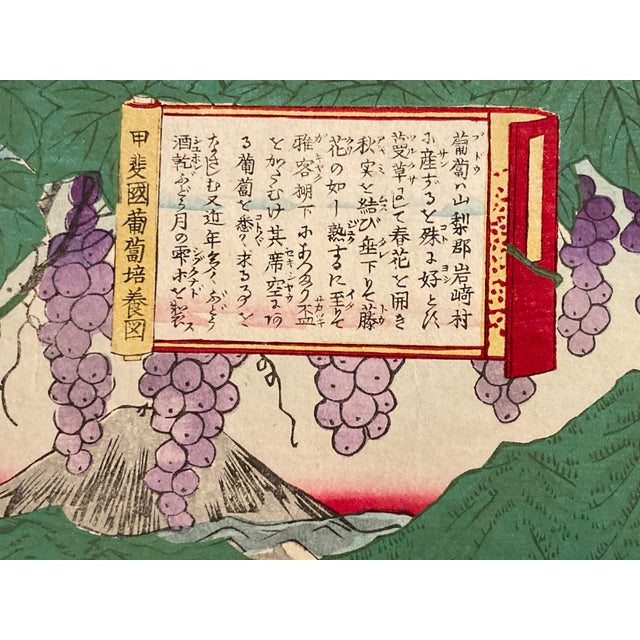 葡萄ハ山梨郡岩崎村
に産ずるを殊に好とす
蔓草にして春花を開き
秋実を結び垂下りて藤
花の如し熟するに至りて
雅客棚下にあつまり盃
をかたむけ其席空
る葡萄を悉く求るを
又近年多くぶどう
酒乾ぶどう月の雫ホを製
甲斐國葡萄培養図